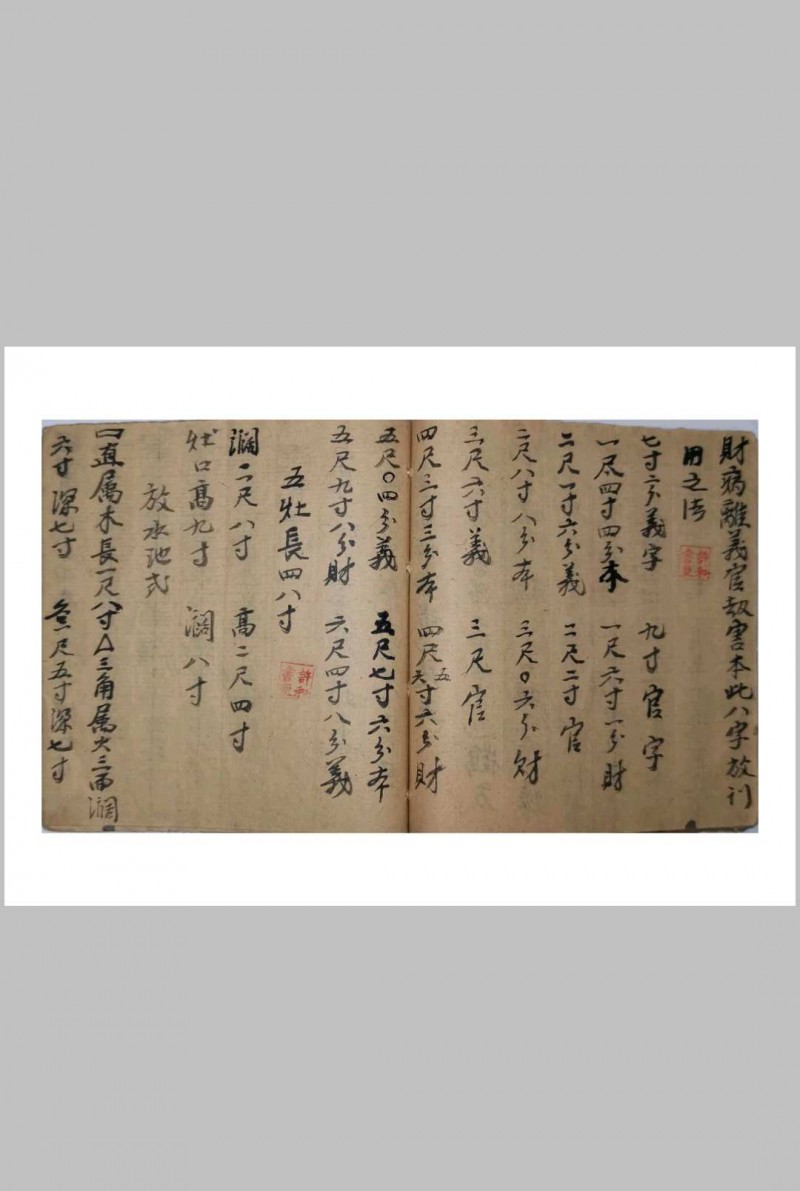 財病離義官劫害本此八字放刋
用之法
七寸二分義字　九寸官字
一尺四寸四分本　一尺六寸一分財
二尺一寸六分義　二尺二寸官
二尺八寸八分本　三尺〇六分財
三尺六寸義　三尺官
四尺三寸三分本　四尺五六寸六分財
五尺〇四分義　五尺七寸六分本
五尺九寸八分財　六尺四寸八分義
五灶長四八寸
濶二尺八寸　高二尺四寸
灶口高九寸　濶八寸
放水池式
口直属木長一尺八寸△三角属火三面濶
六寸深七寸　尺五寸深七寸